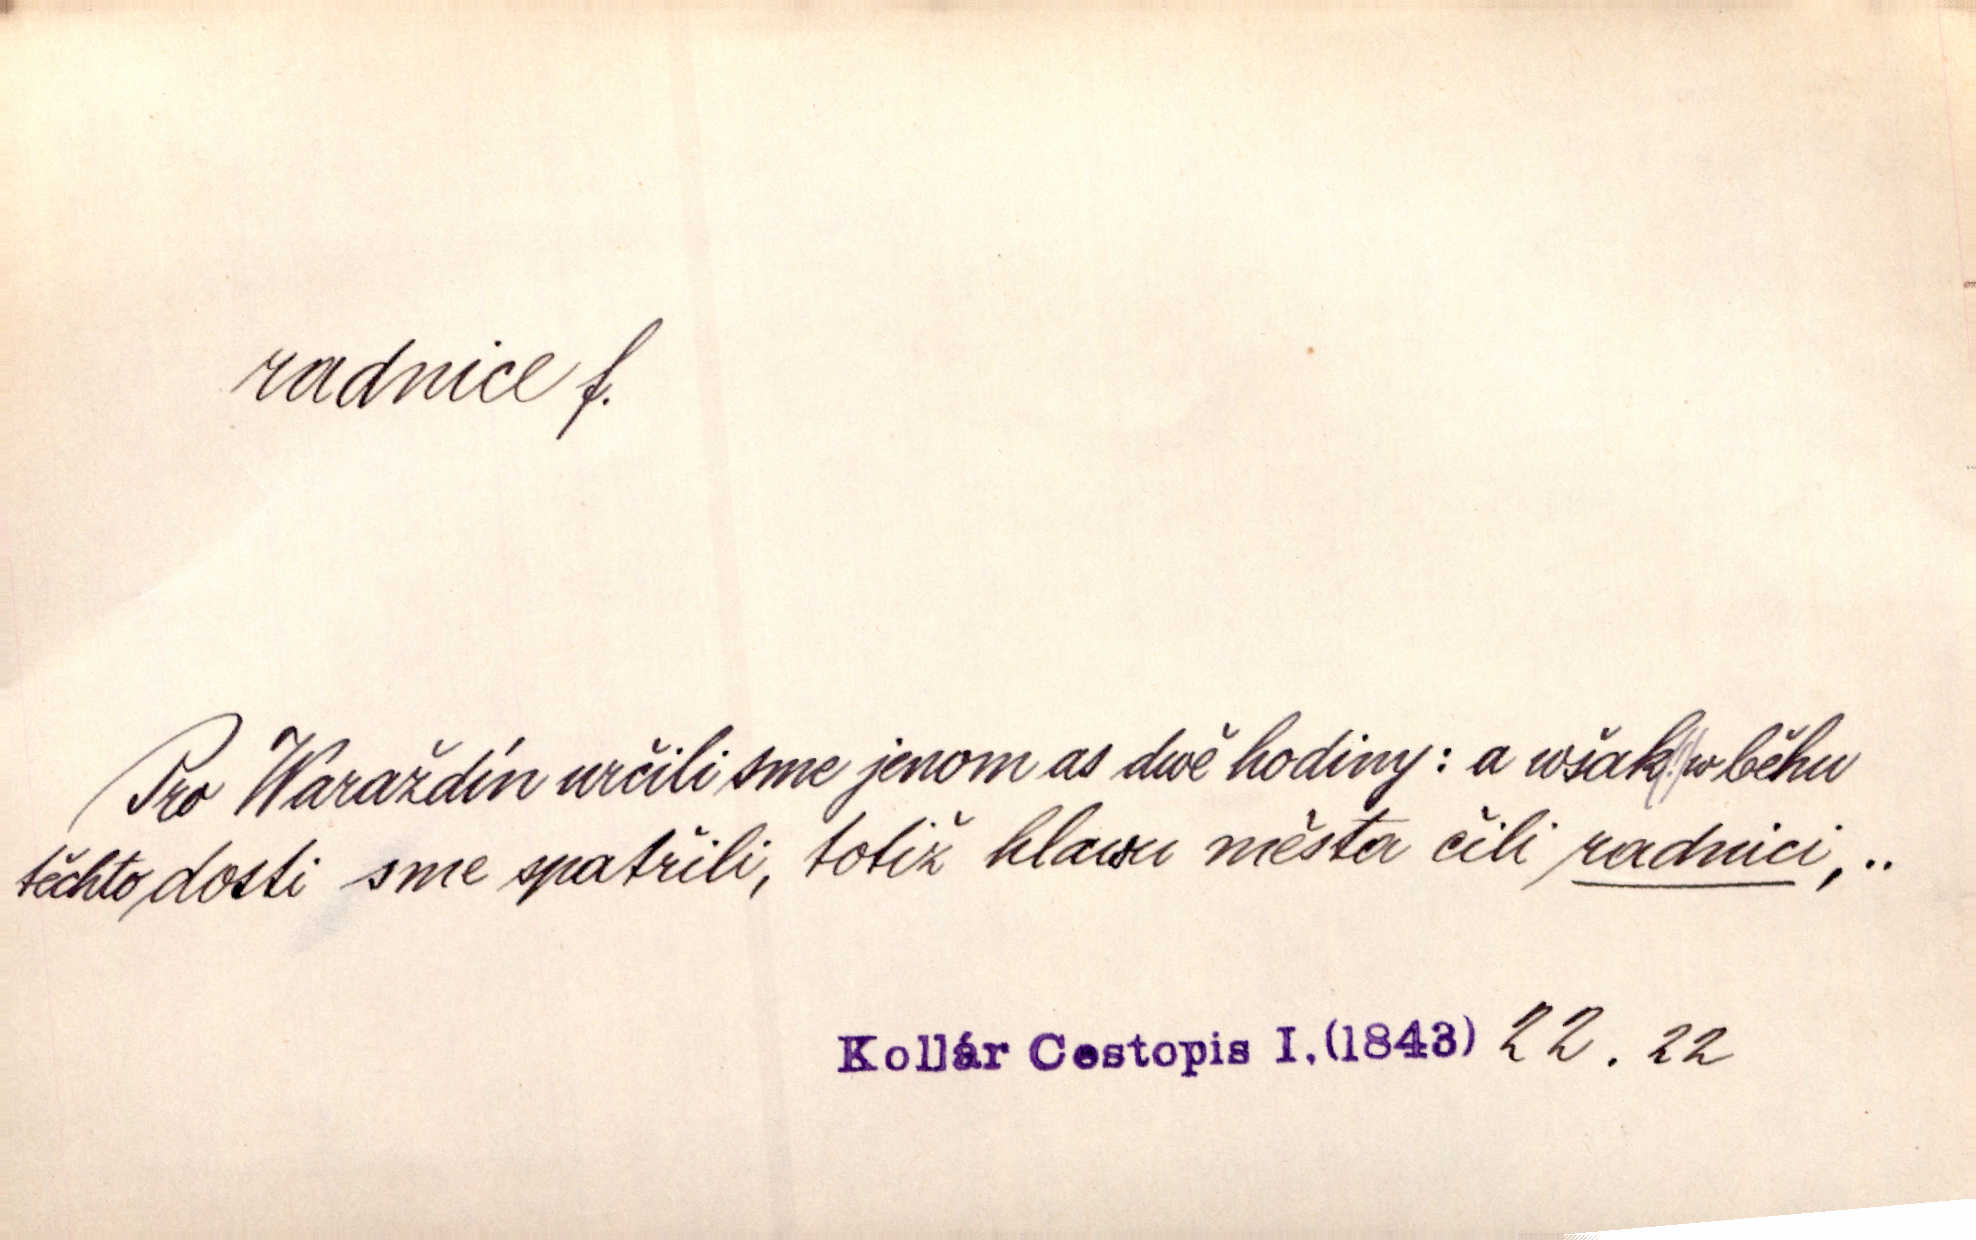 radnice f.
Pro Waraždín určili sme jenom as dwě hodiny: a wšak w běhu
těchto dosti sme spatřili, totiž hlawu města čili radnici, ..
Kollár Cestopis I. (1843) 22. 22